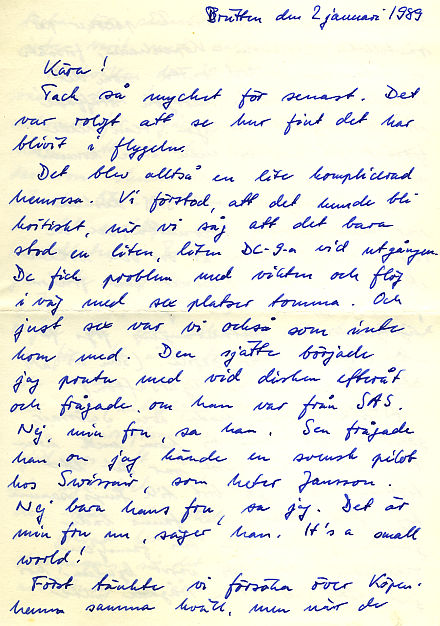 Brütten den 2 januari 1989
Kära !
Tack så mycket för senast. Det
var roligt att se hur fint det har
blivit i flygeln.
Det blev alltså en lite komplicerad
hemresa. Vi förstod, att det kunde bli
kritiskt, när vi såg att det bara
stod en liten, liten DC-9-a vid utgången.
De fick problem med vikten och flög
i väg med sex platser tomma. Och
just sex var vi också som inte
kom med. Den sjätte började
jag prata med vid disken efteråt
och frågade om han var från SAS.
Nej, min fru, sa han. Sen frågade
han om jag kände en svensk pilot
hos Swissair, som heter Jansson.
Nej bara hans fru, sa jag. Det är
min fru nu, säger han. It's a small
world!
Först tänkte vi försöka över Köpen-
hamn samma kväll, men när de